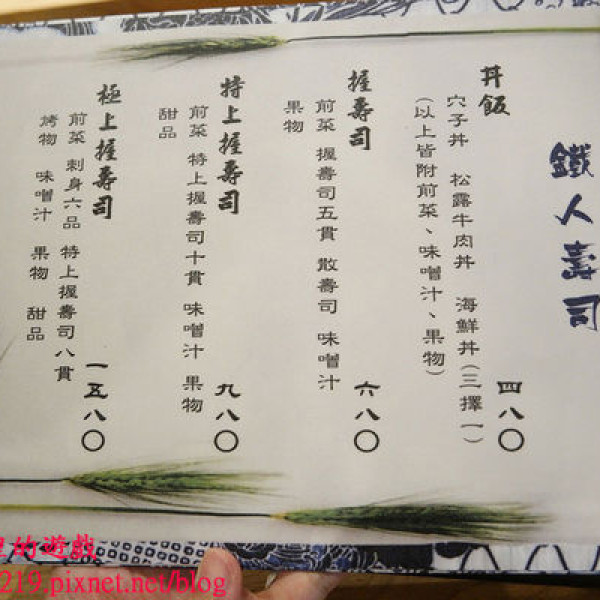 鐵人壽司
丼飯 四八〇
穴子丼 松露牛肉丼 海鮮丼(三擇一)
(以上皆附前菜、味噌汁、果物)
握壽司 六八〇
前菜 握壽司五貫 散壽司 味噌汁
果物
特上握壽司 九八〇
前菜 特上握壽司十貫 味噌汁 果物
甜品
極上握壽司 一五八〇
前菜 刺身六品 特上握壽司八貫
烤物 味噌汁 果物 甜品
的遊戲
219.pixnet.net/blog